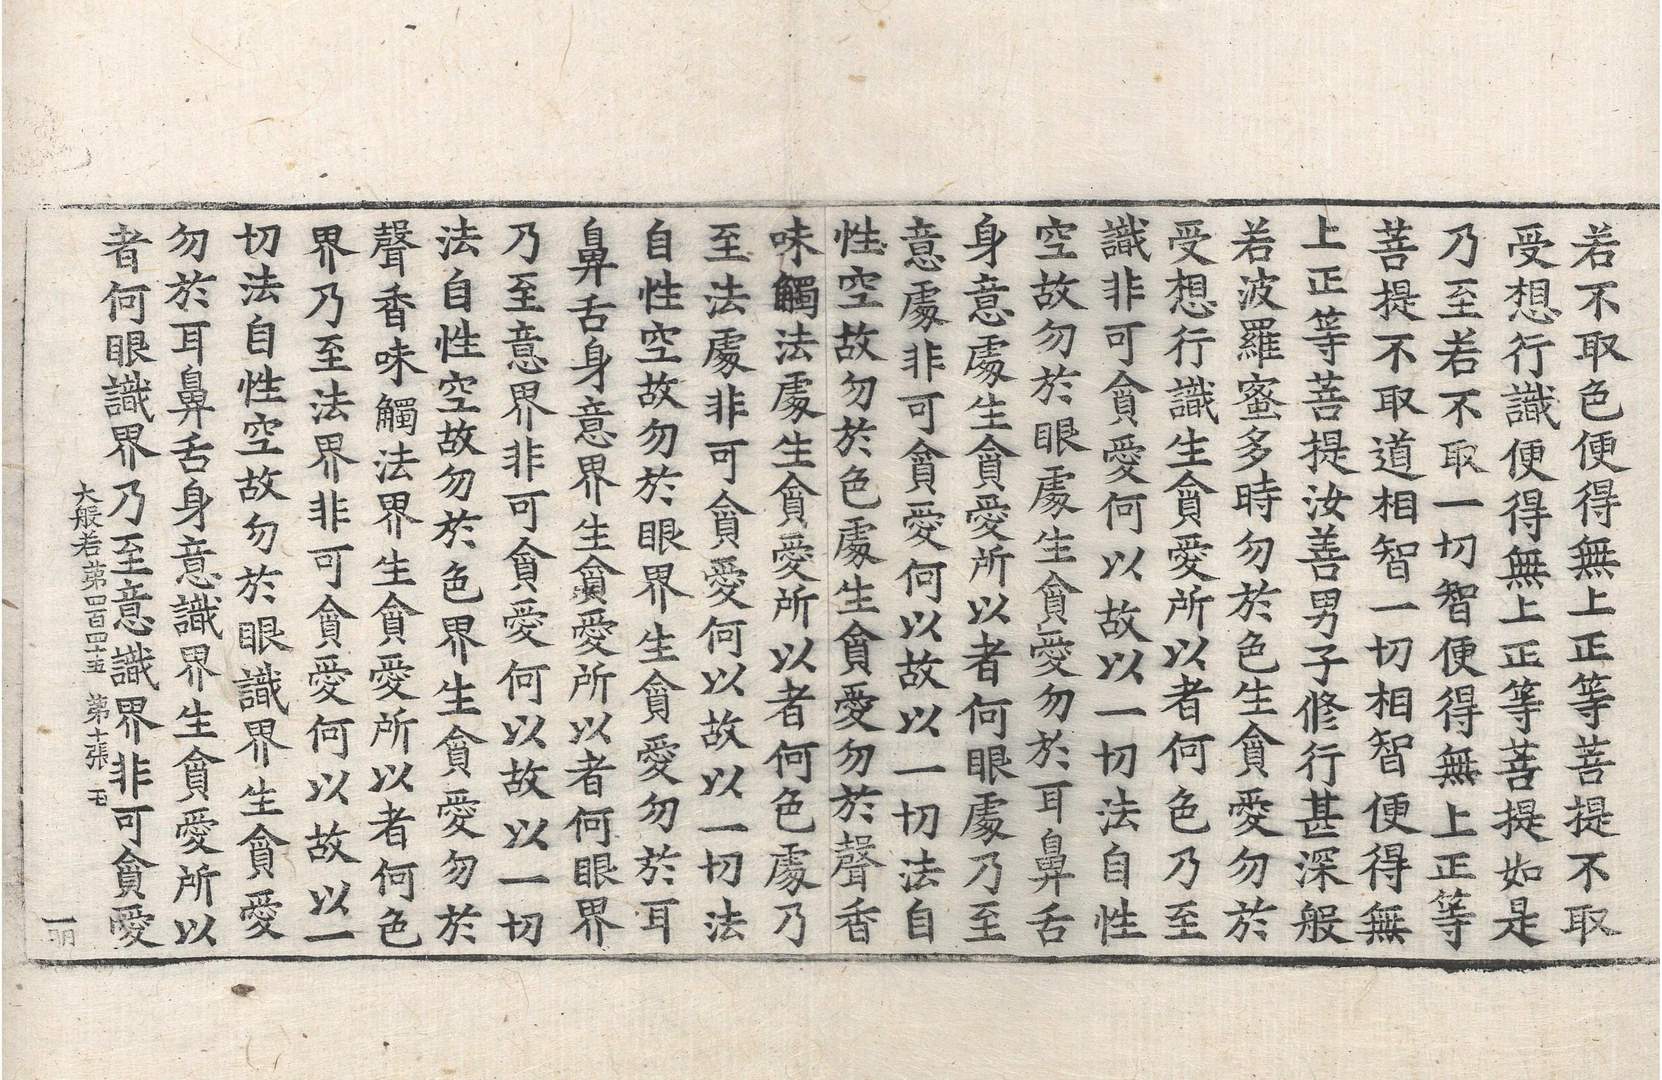 若不取色便得無上正等菩提不取
受想行識便得無上正等菩提如是
乃至若不取一切智便得無上正等
菩提不取道相智一切相智便得無
上正等菩提汝善男子修行甚深般
若波羅蜜多時勿於色生貪愛勿於
受想行識生貪愛所以者何色乃至
識非可貪愛何以故以一切法自性
空故勿於眼處生貪愛勿於耳鼻舌
身意處生貪愛所以者何眼處乃至
意處非可貪愛何以故以一切法自
性空故勿於色處生貪愛勿於聲香
味觸法處生貪愛所以者何色處乃
至法處非可貪愛何以故以一切法
自性空故勿於眼界生貪愛勿於耳
鼻舌身意界生貪愛所以者何眼界
乃至意界非可貪愛何以故以一切
法自性空故勿於色界生貪愛勿於
聲香味觸法界生貪愛所以者何色
界乃至法界非可貪愛何以故以一
切法自性空故勿於眼識界生貪愛
勿於耳鼻舌身意識界生貪愛所以
者何眼識界乃至意識界非可貪愛
大般若第四百四十五 第十張